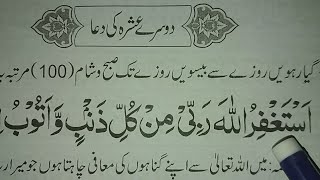 دوسرے عشرہ کی دعا
گیارہویں روزے سے بیسویں روزے تک صبح و شام (100) مرتبہ
اَسْتَغْفِرُ اللّٰهَ رَبِّیْ مِنْ کُلِّ ذَنْۢبٍ وَّاَتُوْبُ
میں اللہ تعالیٰ سے اپنے گناہوں کی معافی چاہتا ہوں جو میرا